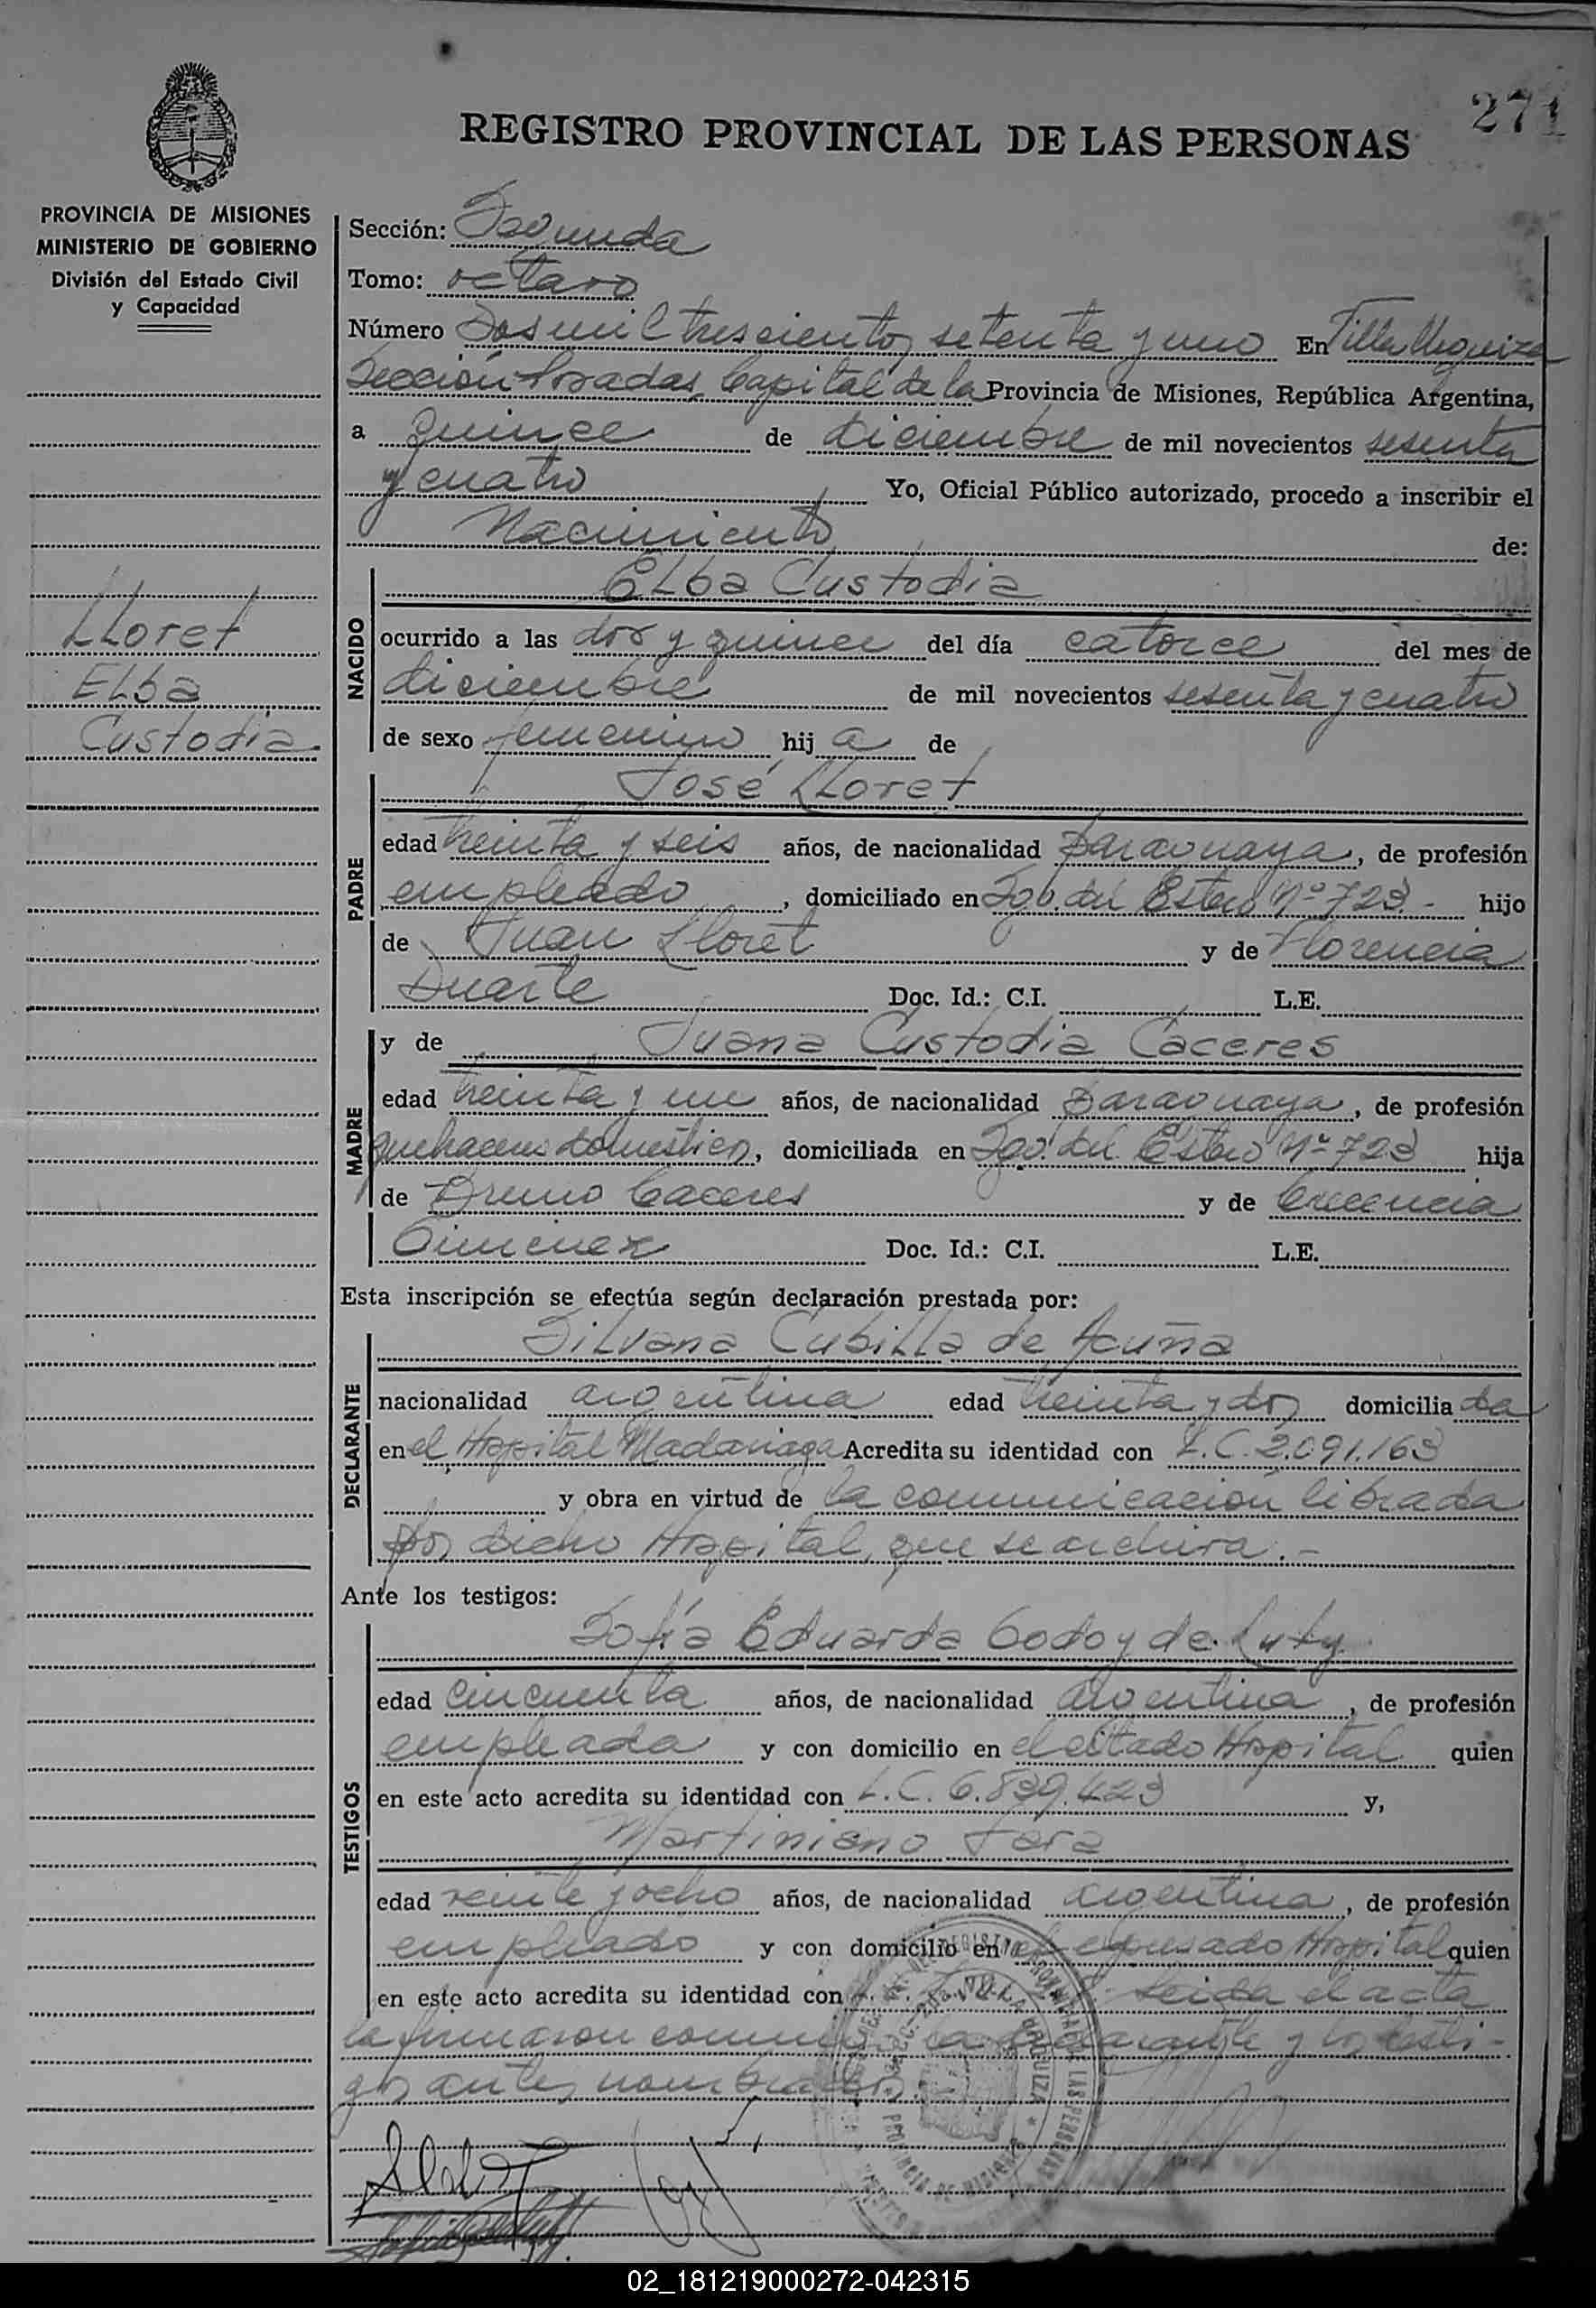 271
REGISTRO PROVINCIAL DE LAS PERSONAS
PROVINCIA DE MISIONES
MINISTERIO DE GOBIERNO
División del Estado Civil
y Capacidad
Lloret
Elba
Custodia
Sección: Segunda
Tomo: octavo
Número Dos mil trescientos setenta y uno En Villa Urquiza
Sección Posadas, Capital de la Provincia de Misiones, República Argentina,
a quince de diciembre de mil novecientos sesenta
y cuatro Yo, Oficial Público autorizado, procedo a inscribir el
Nacimiento de:
NACIDO
Elba Custodia
ocurrido a las dos y quince del día catorce del mes de
diciembre de mil novecientos sesenta y cuatro
de sexo femenino hija de
PADRE
José Lloret
edad treinta y seis años, de nacionalidad paraguaya, de profesión
empleado, domiciliado en Sgo. del Estero Nº 723.- hijo
de Juan Lloret y de Florencia
Duarte Doc. Id.: C.I. L.E.
MADRE
y de Juana Custodia Caceres
edad treinta y un años, de nacionalidad paraguaya, de profesión
quehaceres domésticos, domiciliada en Sgo. del Estero Nº 723 hija
de Bruno Caceres y de Crecencia
Gimenez Doc. Id.: C.I. L.E.
Esta inscripción se efectúa según declaración prestada por:
DECLARANTE
Silvana Cubilla de Acuña
nacionalidad argentina edad treinta y dos domiciliada
en el Hospital Madariaga Acredita su identidad con L.C. 2.091.163
y obra en virtud de la comunicación librada
por dicho Hospital, que se archiva.-
Ante los testigos:
TESTIGOS
Sofía Eduarda Godoy de Luty
edad cincuenta años, de nacionalidad argentina, de profesión
empleada y con domicilio en el citado Hospital quien
en este acto acredita su identidad con L.C. 6.839.423 y,
Martiniano Jara
edad veinte y ocho años, de nacionalidad argentina, de profesión
empleado y con domicilio en el expresado Hospital quien
en este acto acredita su identidad con Leida el acta
la firmaron conmigo la declarante y los testi-
gos antes nombrados
02_181219000272-042315